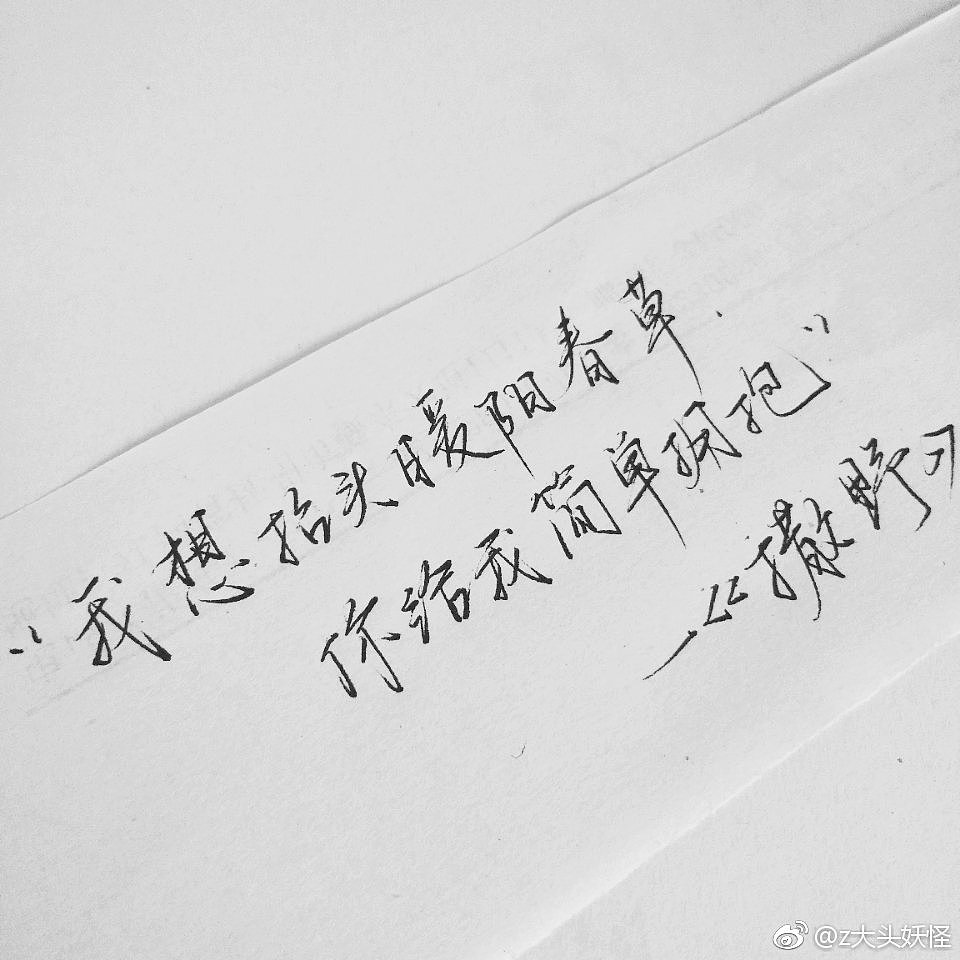 “我想抬头暖阳春草.
你给我简单拥抱”
—《撒野》
@z大头妖怪